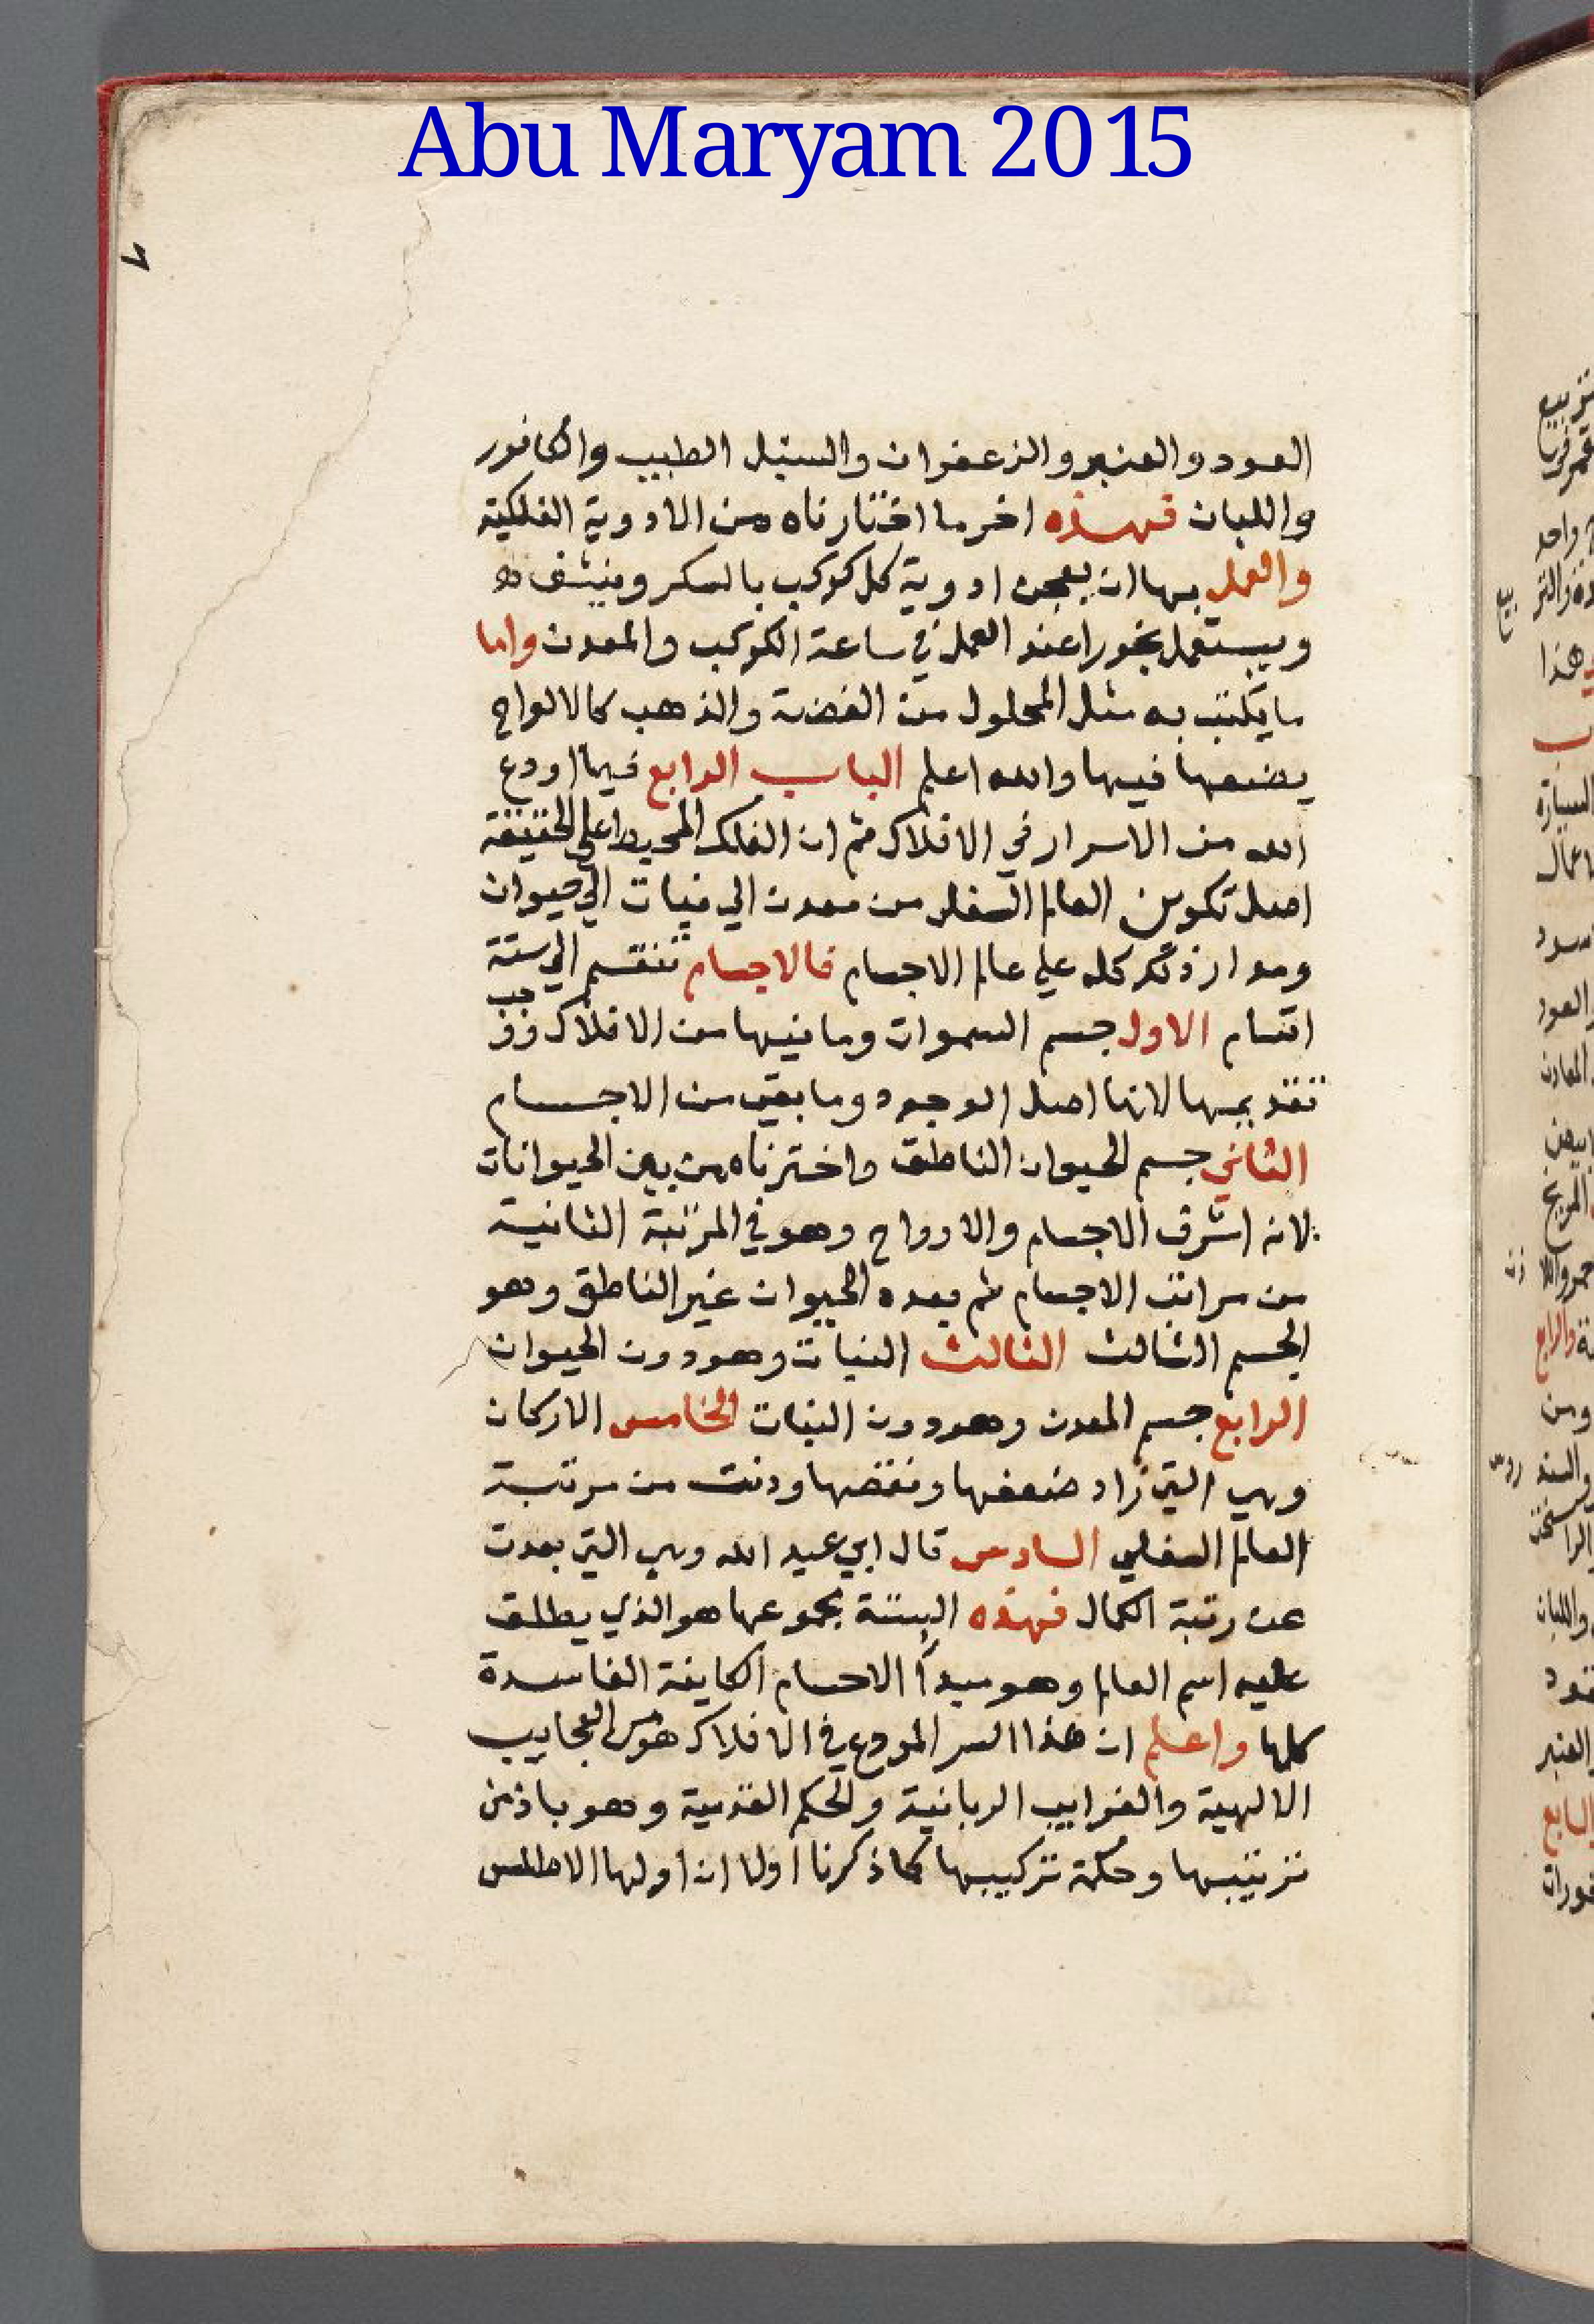 Abu Maryam 2015
٦
العود والعنبر والزعفران والسنبل الطيب والكافور
واللبان فهذه اخر ما اختارناه من الادوية الفلكية
والعمل بها ان يعجن ادوية كل كوكب بالسكر وينشف
ويستعمل بخورا عند العمل في ساعة الكوكب والمعدن واما
ما يكتب به مثل المحلول من الفضة والذهب كالالواح
يضعها فيها والله اعلم الباب الرابع فيما اودع
الله من الاسرار في الافلاك ثم ان الفلك المحيط على الحقيقة
اصل تكوين العالم السفلي من معدن الي نبات الي حيوان
ومدار ذلك كله علي عالم الاجسام فالاجسام تنقسم الي ستة
اقسام الاول جسم السموات وما فيها من الافلاك فوجب
تقديمها لانها اصل الوجود وما بقي من الاجسام
الثاني جسم الحيوان الناطق واخترناه من بين الحيوانات
لانه اشرف الاجسام والارواح وهو في المرتبة الثانية
من مراتب الاجسام ثم بعده الحيوان غير الناطق وهو
الجسم الثالث الثالث النبات وهو دون الحيوان
الرابع جسم المعدن وهو دون النبات الخامس الاركان
وهي التي زاد ضعفها ونقصها ودنت من مرتبة
العالم السفلي السادس قال ابي عبد الله وهي التي بعدت
عن رتبة الكمال فهذه الستة بمجموعها هو الذي يطلق
عليه اسم العالم وهو مبدأ الاجسام الكاينة الفاسدة
كلها واعلم ان هذا السر المودع في الافلاك هو من العجايب
الالهية والغرايب الربانية والحكم القدسية وهو باذن
ترتيبها وحكمة تركيبها كما ذكرنا اولا ان اولها الاطلس